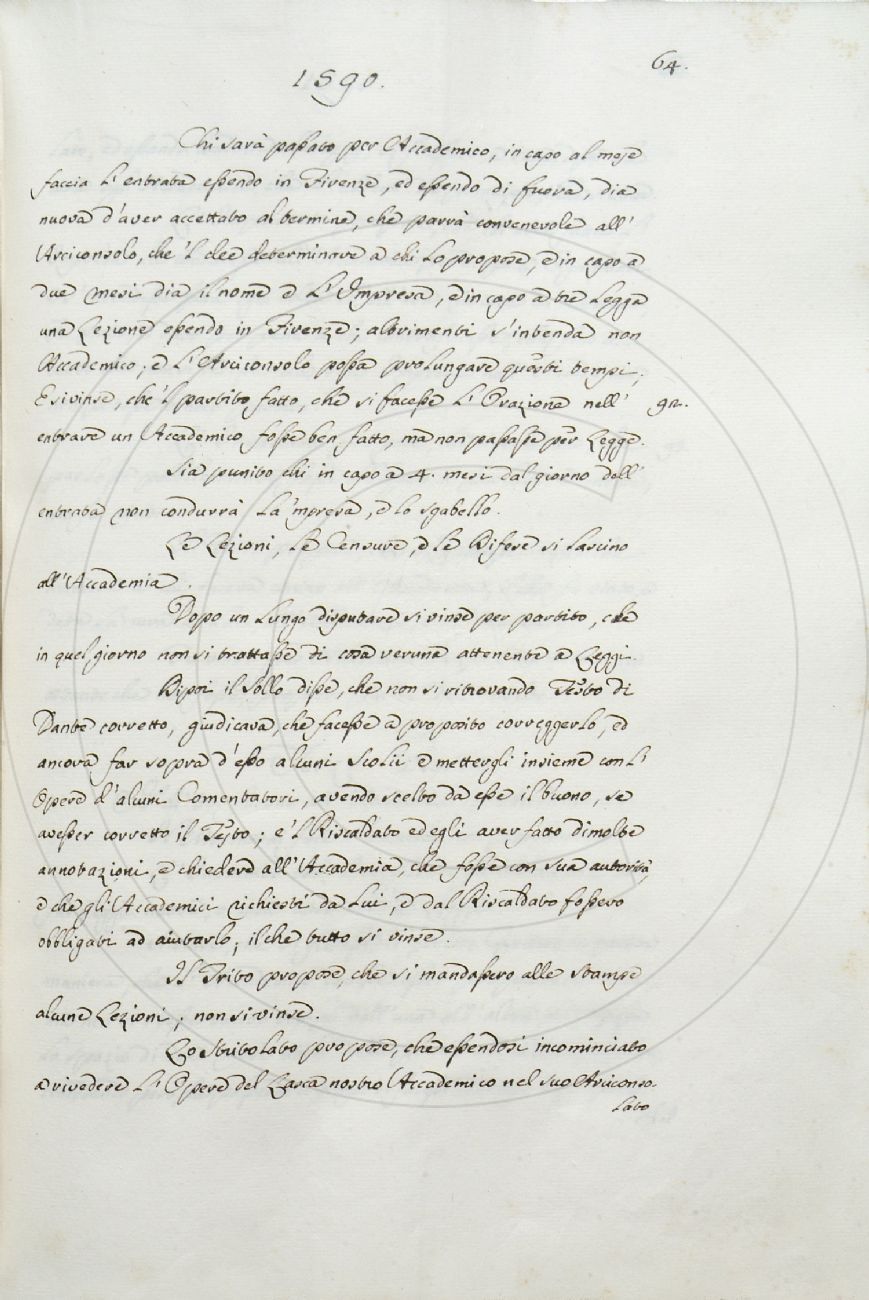 64.
1590.
Chi sarà passato per Accademico, in capo al mese
faccia l'entrata essendo in Firenze, ed essendo di fuora, dia
nuova d'aver accettato al termine, che parrà convenevole all'
Arciconsolo, che 'l dee determinare a chi lo propose, e in capo a
due mesi dia il nome e l'Impresa, e in capo a tre legga
una Lezione essendo in Firenze; altrimenti s'intenda non
Accademico; e l'Arciconsolo possa prolungare questi tempi;
E si vinse, che 'l partito fatto, che si facesse l'Orazione nell'
entrare un Accademico, fosse ben fatto, ma non passasse per Legge.
Sia punito chi in capo a 4. mesi dal giorno dell'
entrata non condurrà la 'mpresa, e lo sgabello.
Le Lezioni, le Censure, e le Difese si lascino
all'Accademia.
Dopo un lungo disputare si vinse per partito, che
in quel giorno non si trattasse di cosa veruna attenente a Leggi.
Dipoi il Sollo disse, che non si ritrovando Testo di
Dante corretto, giudicava, che facesse a proposito correggerlo, ed
ancora far sopra d'esso alcuni Scolii e mettergli insieme con l'
Opere d'alcuni Comentatori, avendo scelto da esse il buono, se
avesser corretto il Testo; e 'l Riscaldato ed egli aver fatto dimolte
annotazioni, e chiedere all'Accademia, che fosse con sua autorità,
e che gli Accademici richiesti da lui, e dal Riscaldato fossero
obbligati ad aiutarlo; il che tutto si vinse.
Il Trito propose, che si mandassero alle stampe
alcune Lezioni; non si vinse.
Lo Stritolato propose, che essendosi incominciato
a rivedere l'Opere del Lasca nostro Accademico nel suo Arciconso-
lato